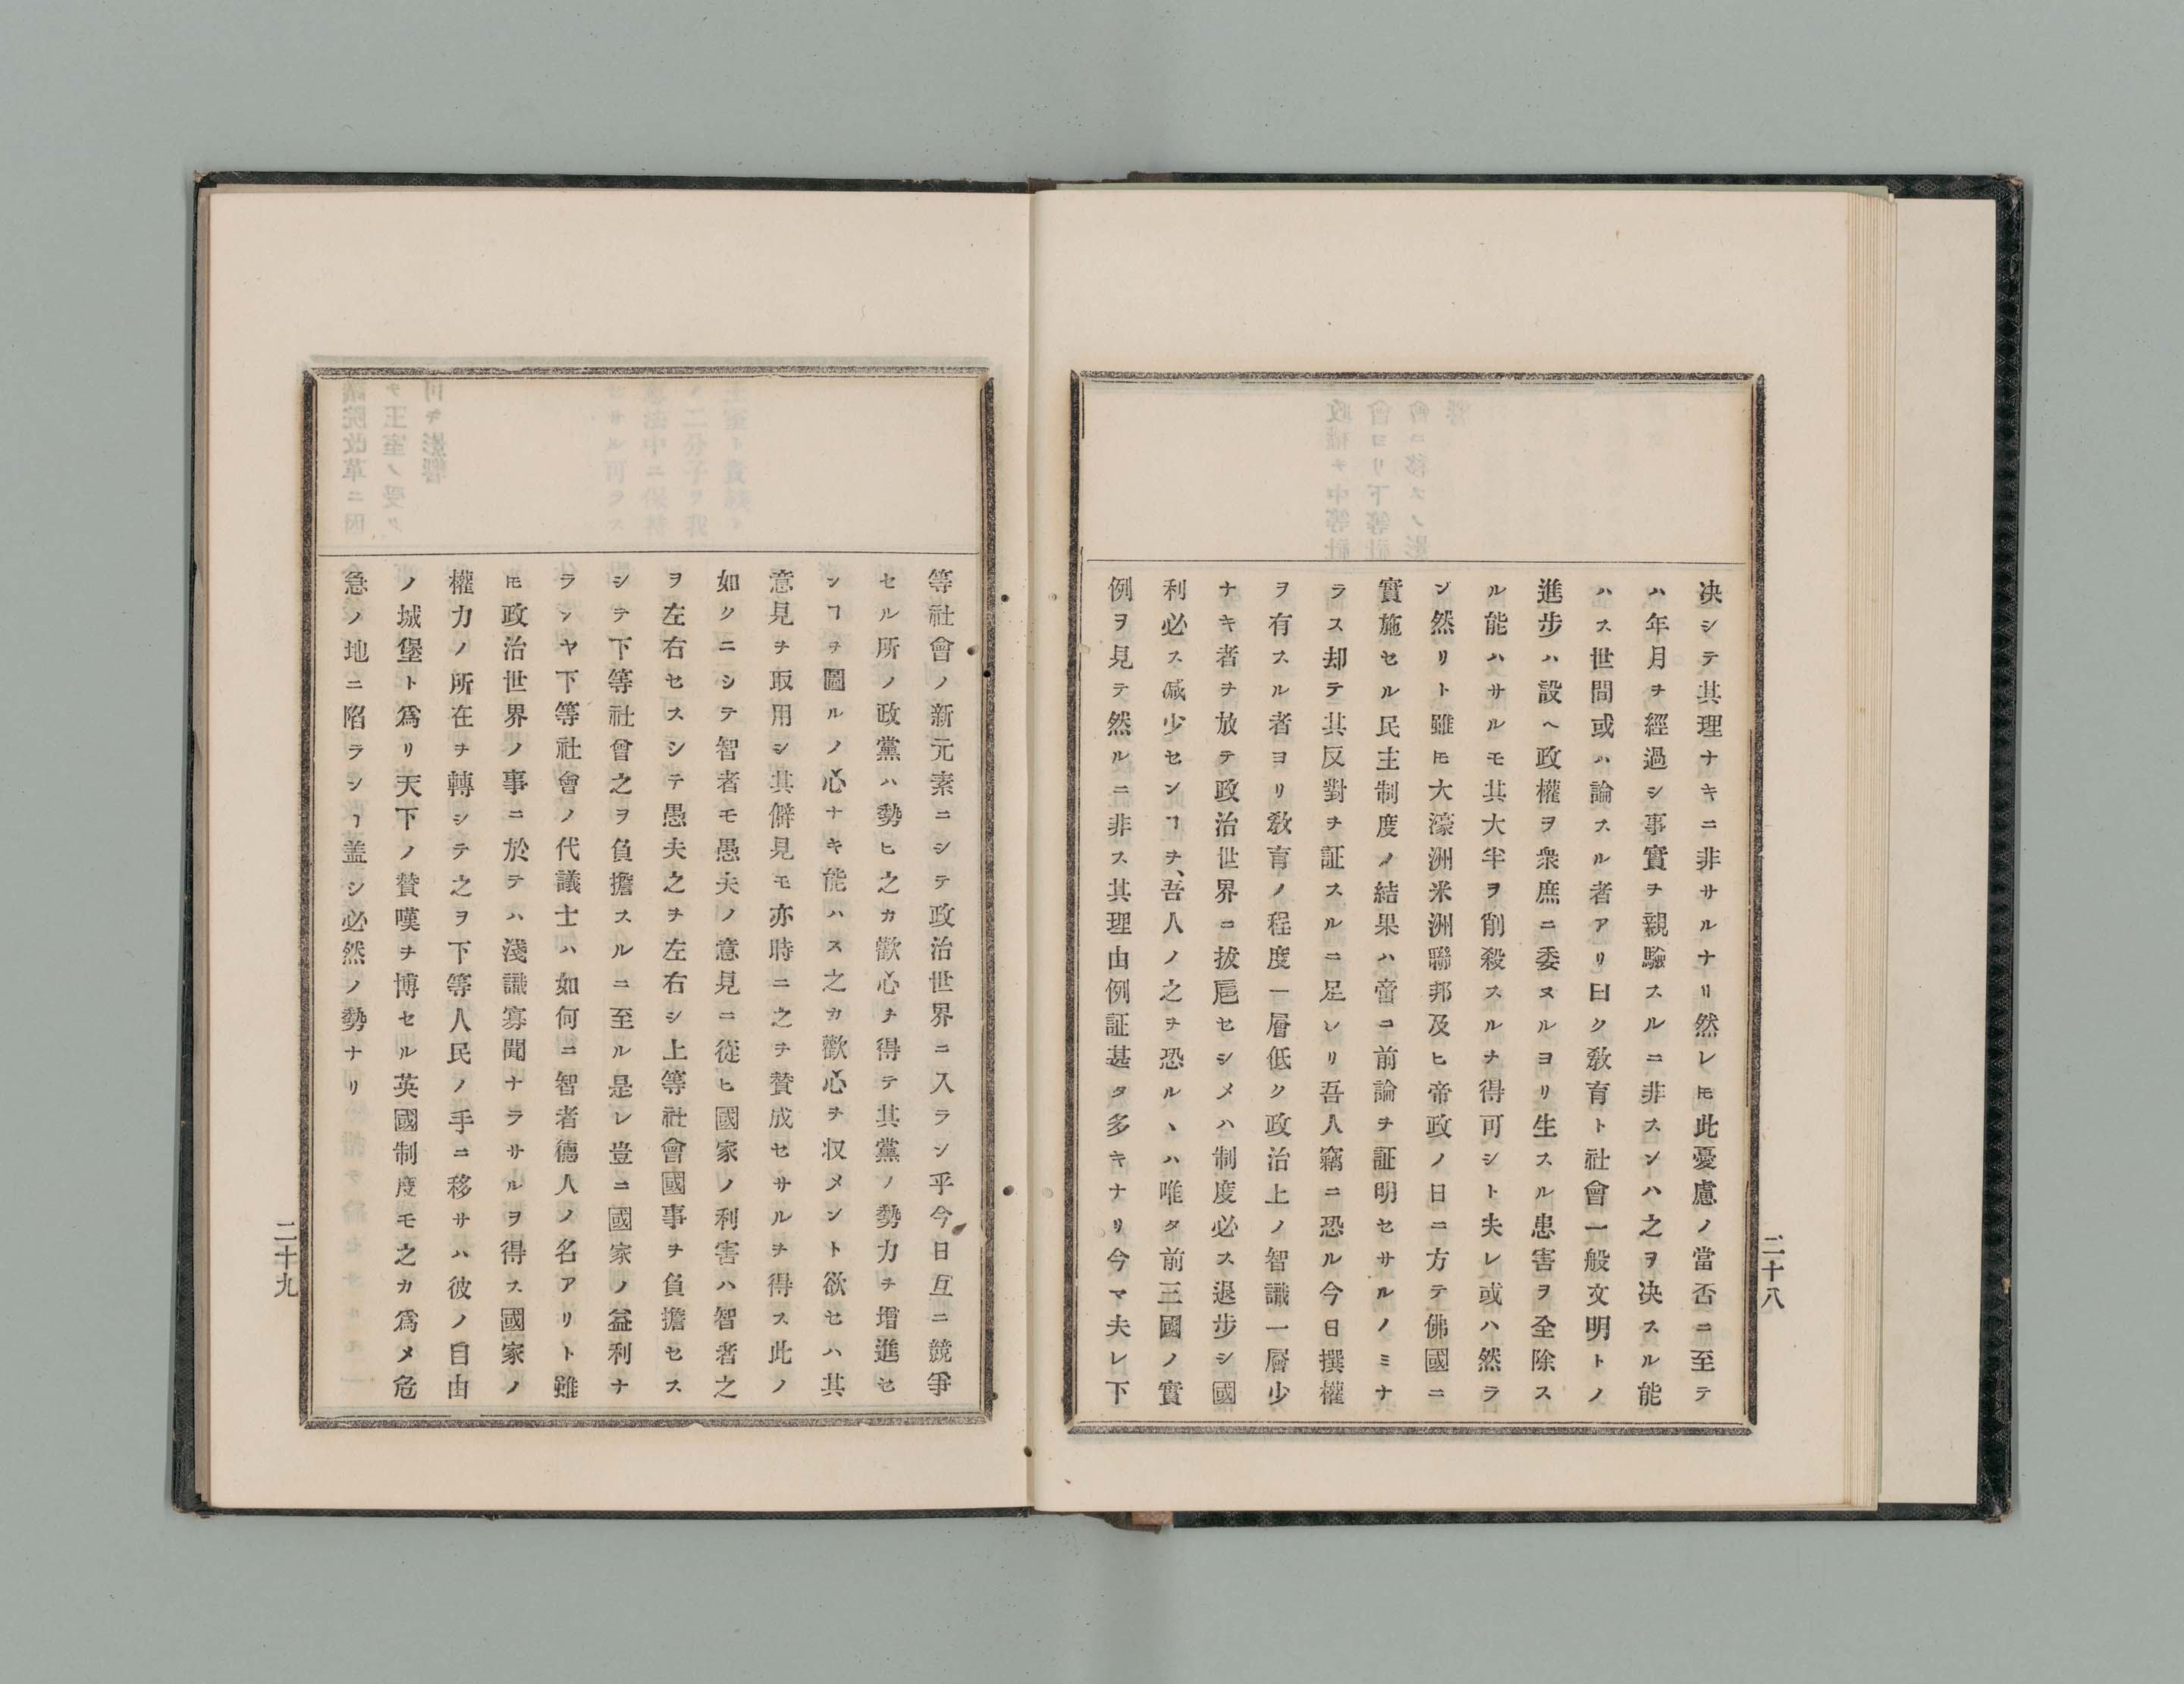 决シテ其理ナキニ非サルナリ然レ𪜈此憂慮ノ當否ニ至テ
ハ年月ヲ經過シ事實ヲ親驗スルニ非スンハ之ヲ决スル能
ハス世間或ハ論スル者アリ曰ク敎育ト社會一般文明トノ
進步ハ設ヘ政權ヲ衆庶ニ委ヌルヨリ生スル患害ヲ全除ス
ル能ハサルモ其大半ヲ削殺スルヲ得可シト夫レ或ハ然ラ
ン然リト雖𪜈大濠洲米洲聯邦及ヒ帝政ノ日ニ方テ佛國ニ
實施セル民主制度ノ結果ハ啻ニ前論ヲ証明セサルノミナ
ラス却テ其反對ヲ証スルニ足レリ吾人竊ニ恐ル今日撰權
ヲ有スル者ヨリ敎育ノ程度一層低ク政治上ノ智識一層少
ナキ者ヲ放テ政治世界ニ拔扈セシメハ制度必ス退步シ國
利必ス减少センヿヲ、吾人ノ之ヲ恐ルヽハ唯タ前三國ノ實
例ヲ見テ然ルニ非ス其理由例証甚タ多キナリ今マ夫レ下
二十八
等社會ノ新元素ニシテ政治世界ニ入ラン乎今日互ニ競爭
セル所ノ政黨ハ勢ヒ之カ歡心ヲ得テ其黨ノ勢力ヲ增進セ
ンヿヲ圖ルノ心ナキ能ハス之カ歡心ヲ収メント欲セハ其
意見ヲ取用シ其僻見モ亦時ニ之ヲ賛成セサルヲ得ス此ノ
如クニシテ智者モ愚夫ノ意見ニ從ヒ國家ノ利害ハ智者之
ヲ左右セスシテ愚夫之ヲ左右シ上等社會國事ヲ負擔セス
シテ下等社會之ヲ負擔スルニ至ル是レ豈ニ國家ノ益利ナ
ランヤ下等社會ノ代議士ハ如何ニ智者德人ノ名アリト雖
𪜈政治世界ノ事ニ於テハ淺識寡聞ナラサルヲ得ス國家ノ
權力ノ所在ヲ轉シテ之ヲ下等人民ノ手ニ移サハ彼ノ自由
ノ城堡ト爲リ天下ノ賛嘆ヲ博セル英國制度モ之カ爲メ危
急ノ地ニ陷ランヿ盖シ必然ノ勢ナリ
二十九